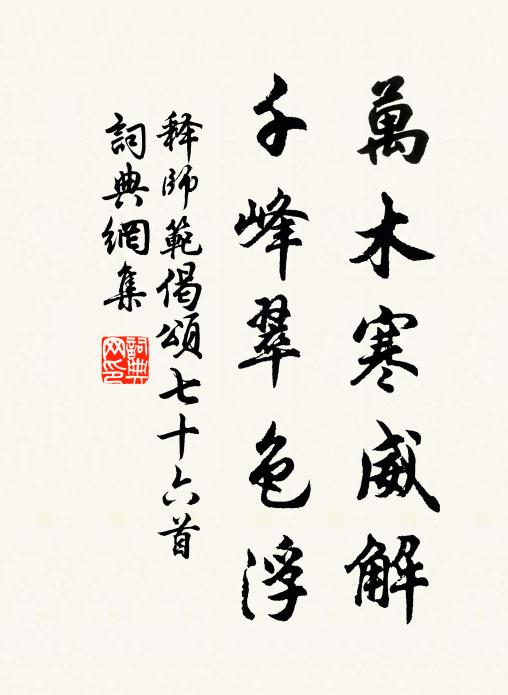 萬木寒威解
千峰翠色浮
释師範偈頌七十六首
詞典網集
詞典網印